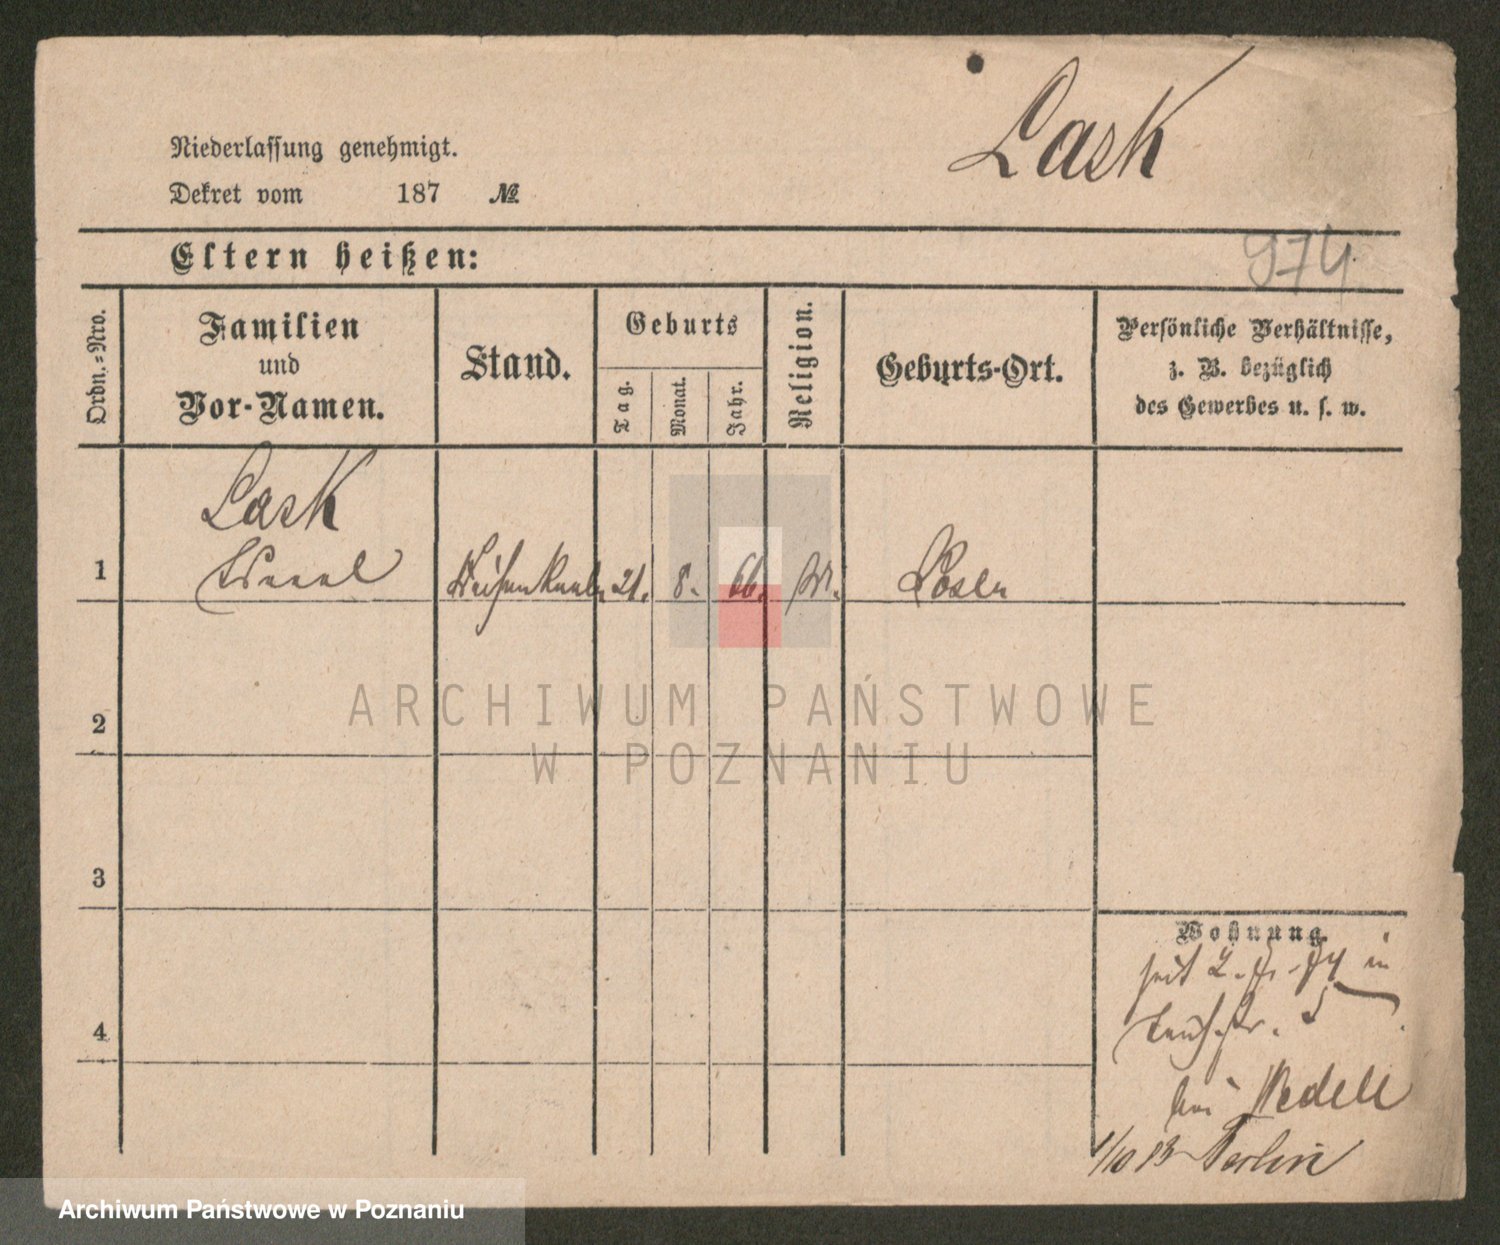 Lask
Niederlassung genehmigt.
Dekret vom 187 №
974
Eltern heißen:
Ordn.-Nro.
Familien
und
Vor-Namen.
Stand.
Geburts
Tag.
Monat.
Jahr.
Religion.
Geburts-Ort.
Persönliche Verhältnisse,
z. B. bezüglich
des Gewerbes u. s. w.
Lask
1 Waisenknabe 21. 8. 66. M. Posen
2
3
4
Wohnung
seit 2. 74 in
5
bei Wedell
1/10 83 Berlin
ARCHIWUM PAŃSTWOWE
W POZNANIU
Archiwum Państwowe w Poznaniu